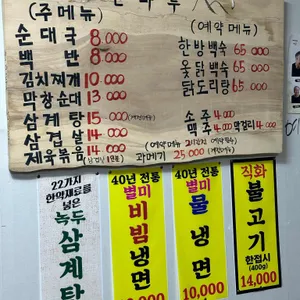 (주메뉴)
순대국 8000
백반 8000
김치찌개 10000
막창순대 13000
삼계탕 15000
삼겹살 14000
제육볶음 14000
(예약메뉴)
한방백숙 65000
옻닭백숙 65000
닭도리탕 65000
소주 4000
맥주 4000 막걸리 4000
과메기 25000
22가지
한약재료를
넣은
녹두
삼계탕
40년 전통
별미
비빔냉면
40년 전통
별미
물냉면
10,000
직화
불고기
한접시
(400g)
14,000